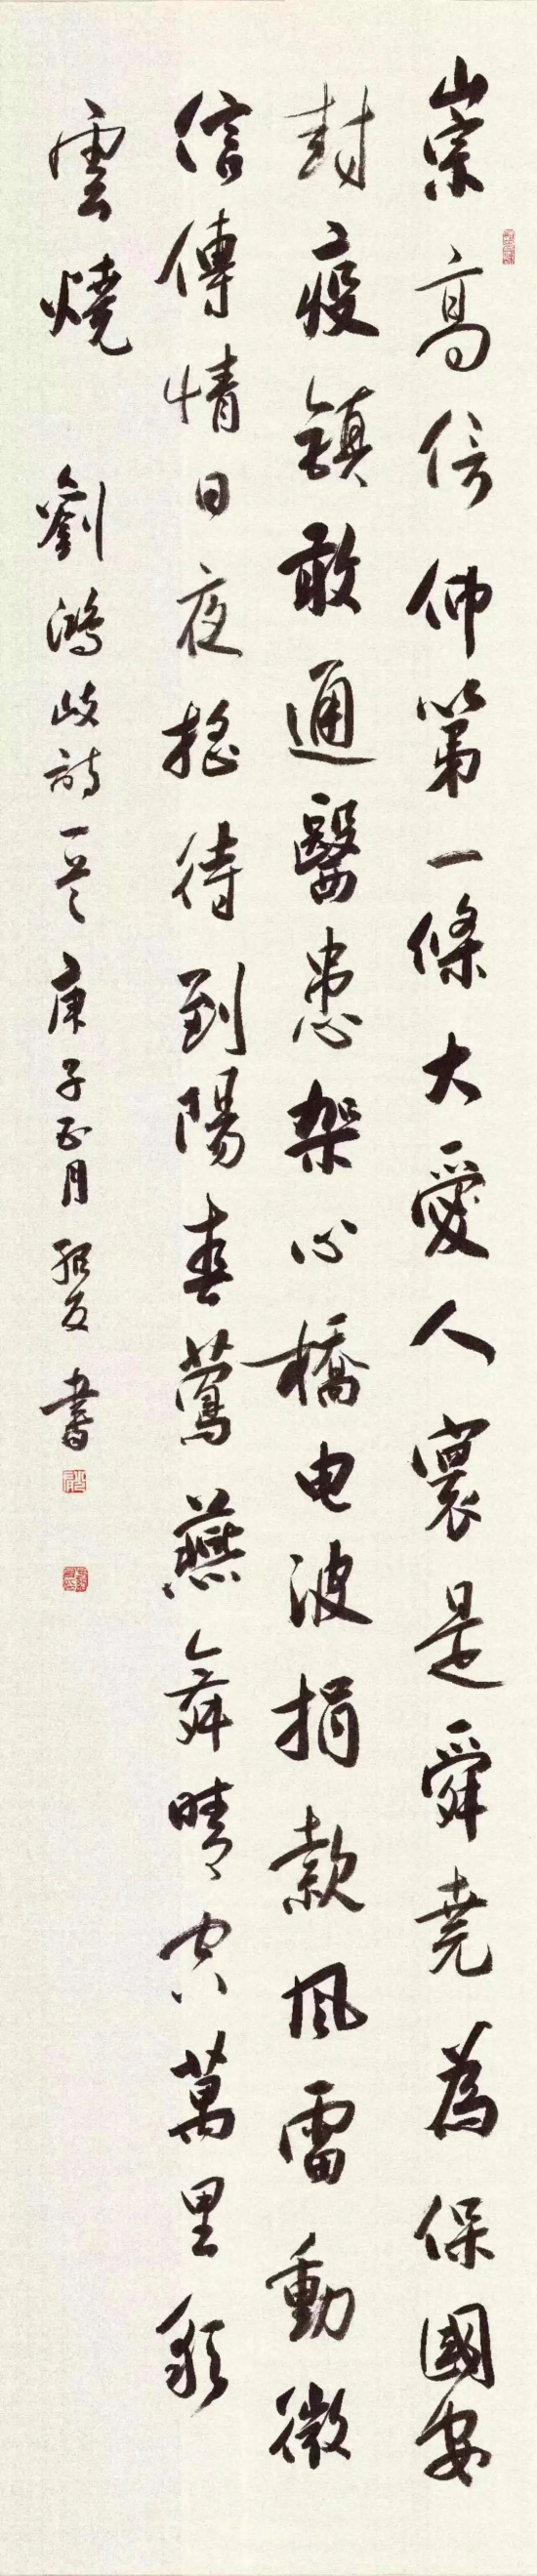 崇高信仰第一條大愛人寰是舜堯為保國安
封疫鎮敢通醫患架心橋电波捐款风雷動微
信傳情日夜搖待到陽春鶯燕舞晴空萬里彩
雲燒 劉鴻岐詩一首 庚子正月 書